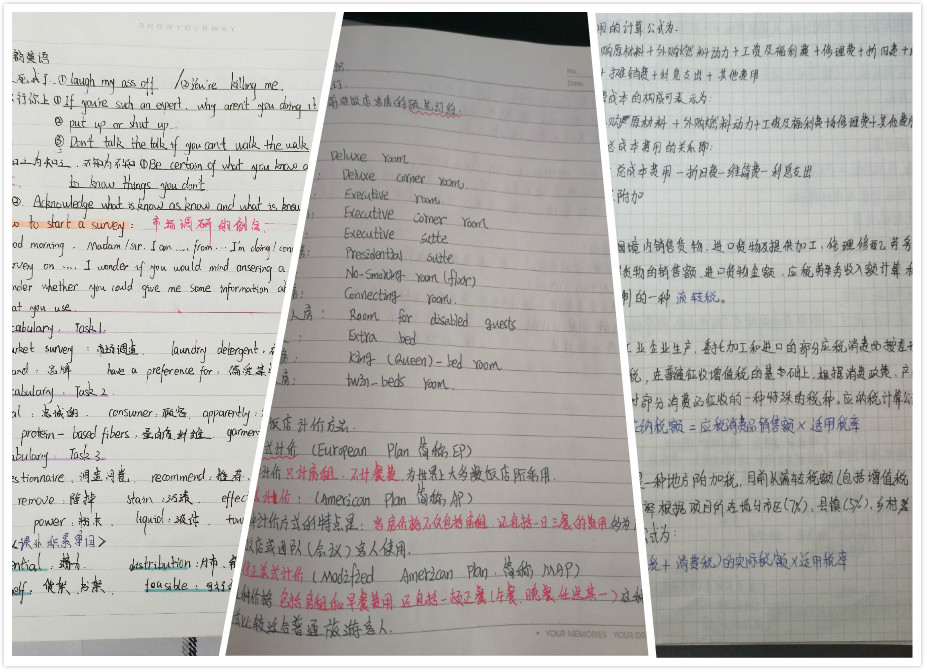 SHOWYOURWAY
英语
① laugh my ass off / ② you're killing me.
你上 ① If you're such an expert, why aren't you doing it
② put up or shut up.
③ Don't talk the talk if you can't walk the walk
不知为不知 ① Be certain of what you know a
to know things you don't
②. Acknowledge what is know as know and what is know
to start a survey: 市场调研的例句.
od morning. Madam/sir. I am .... from... I'm doing/con
rvey on .... I wonder if you would mind ansering a
nder whether you could give me some information a
at you use.
cabulary. Task 1.
rket survey: 市场调查. laundry detergent.
and: 品牌 have a preference for: 偏爱某
cabulary. Task 2
al: 忠诚的. consumer: 顾客. apparently:
protein-based fibers. 蛋白质纤维. garmen
abulary. Task 3.
stionnaire. 调查问卷. recommend: 推荐.
remove: 除掉 stain: 污渍. effec
power: 粉末. liquid: 液体. tow
<课外积累单词>
ential: distribution: 分布.
elf: 书架 feasible: 可行
No.
Date.
Deluxe room.
Deluxe corner room
Executive room
Executive corner room
Executive suite
Presidential suite
No-smoking room (floor)
Connecting room.
人房: Room for disabled guests
Extra bed
King (Queen)-bed room
房: twin-beds room.
饭店计价方式.
式计价 (European Plan 简称, EP)
计价只计房租, 不计餐费 为世界上大多数饭店所采用.
计价: (American Plan 简称, AP)
种计价方式的特点是: 客房价格不仅包括房租, 还包括一日三餐的费用
饭店或团队(会议)客人使用.
修正美式计价 (Modified American Plan. 简称, MAP)
种价格包括房租和早餐费用 还包括一顿正餐(午餐、晚餐任选其一)
比较适合普通旅游客人.
YOUR MEMORIES YOUR DR
用的计算公式为:
购原材料 + 外购燃料动力 + 工资及福利费 + 修理费 + 折旧费 +
+ 摊销费 + 利息支出 + 其他费用
成本的构成可表示为:
购原材料 + 外购燃料动力 + 工资及福利费 + 修理费 + 其他费用
总成本费用的关系即:
总成本费用 - 折旧费 - 维简费 - 利息支出
附加
国境内销售货物、进口货物及提供加工、修理修配劳务
货物的销售额、进口货物金额、应税劳务收入额计算
制的一种 流转税。
工业企业生产、委托加工和进口的部分应税消费品按差
税, 在普遍征收增值税的基础上, 根据消费政策、产
对部分消费品征收的一种特殊的税种。应纳税计算公
应纳税额 = 应税消费品销售额 × 适用税率
是一种地方附加税, 目前以流转税额(包括增值税
根据项目所在地分市区(7%)、县镇(5%)、乡村
公式为:
税 + 消费税)的实际税额 × 适用税率